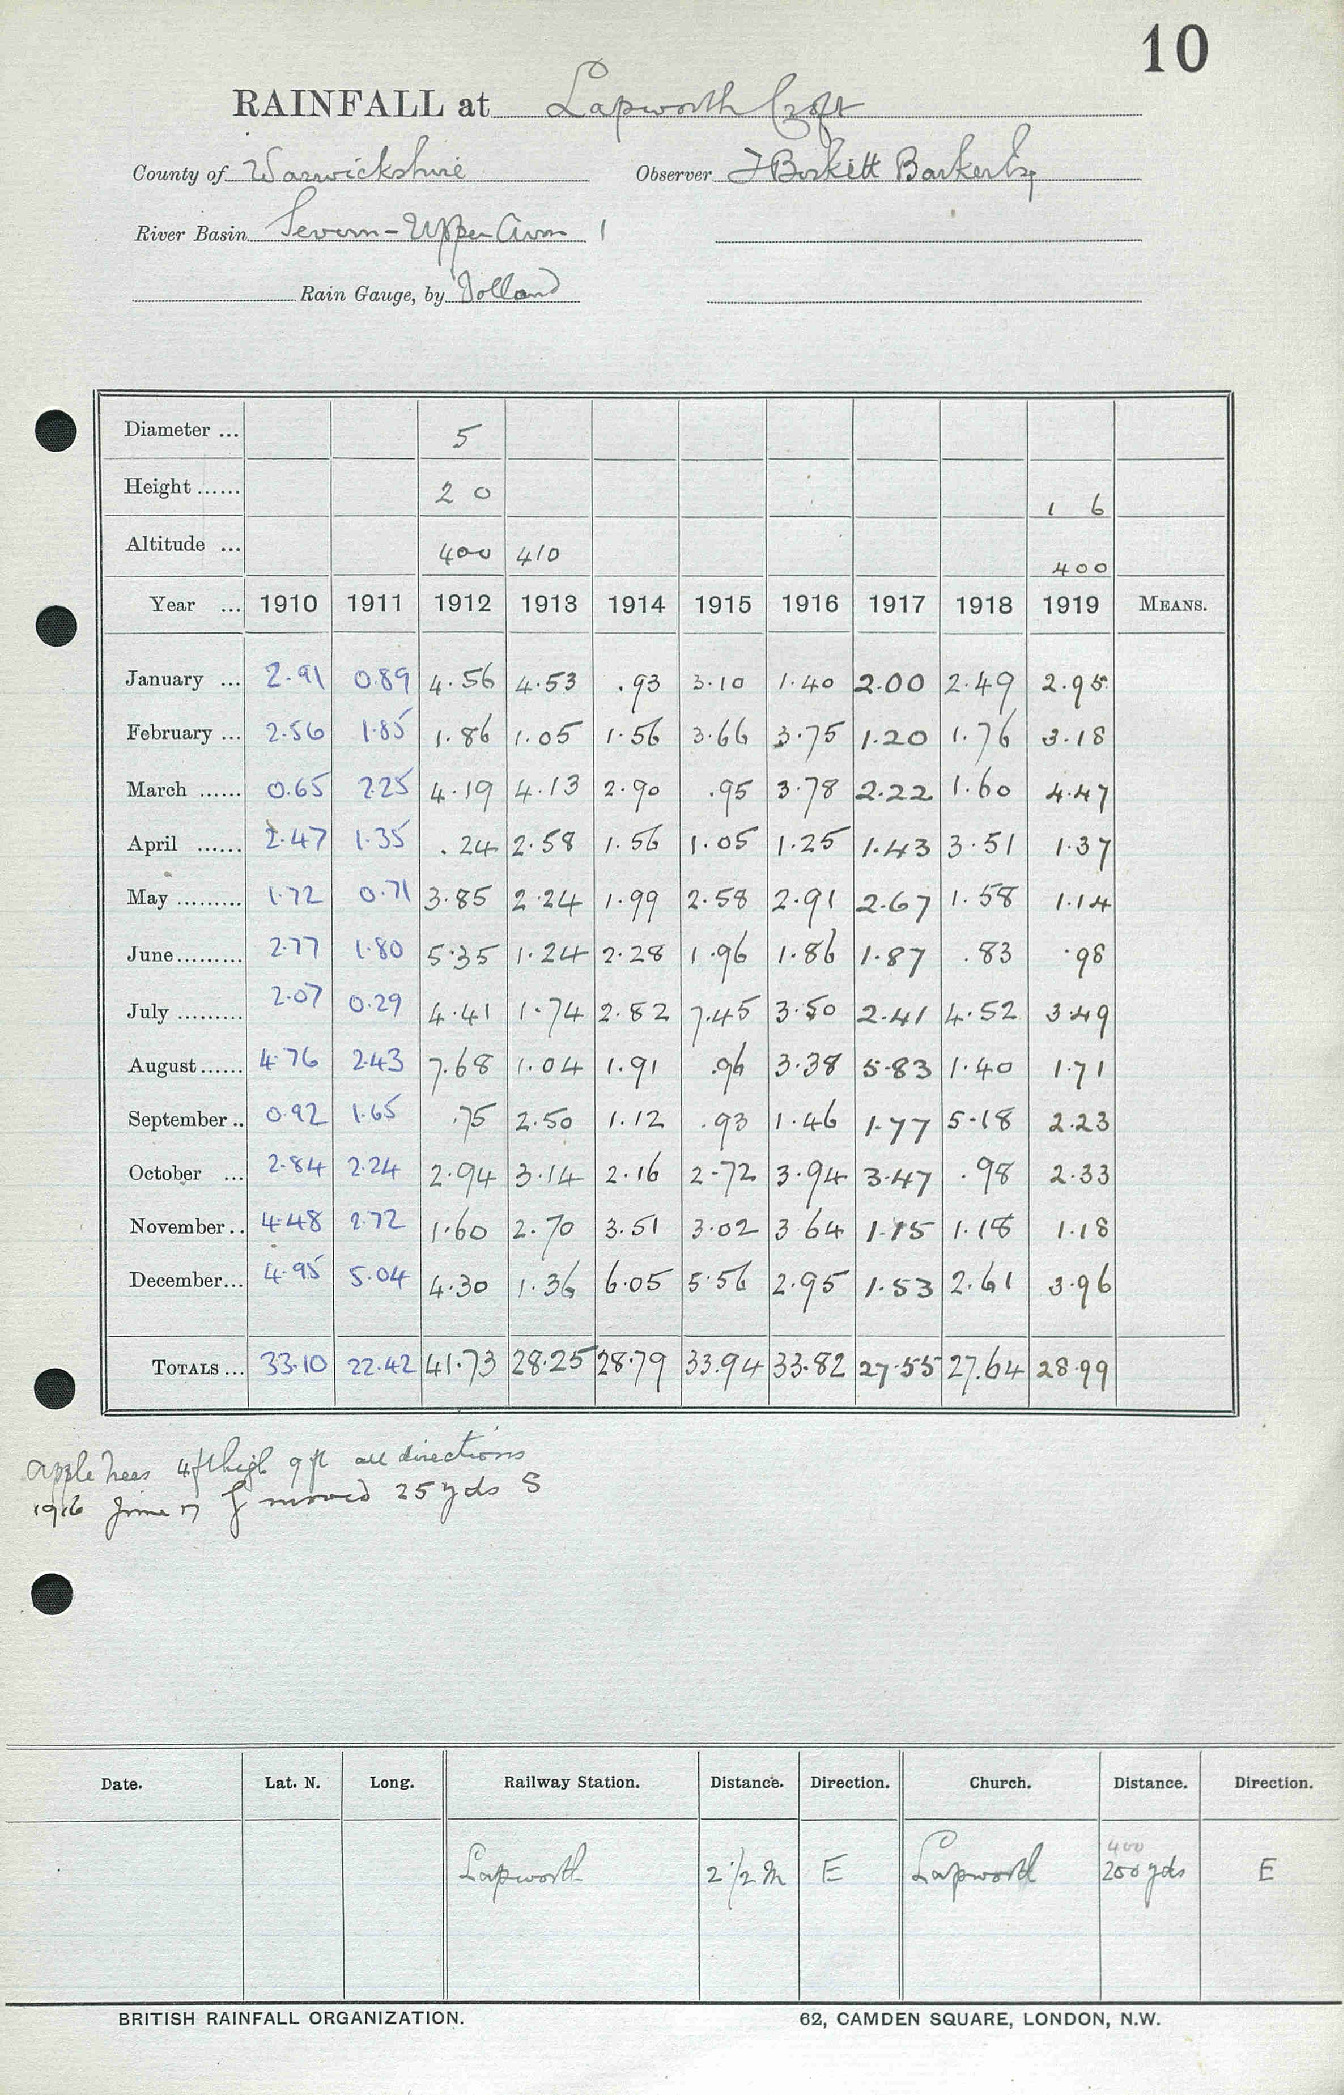 10
RAINFALL at Lapworth Croft
County of Warwickshire Observer J Boskett Barker Esq
River Basin Severn - Upper Avon 1
Rain Gauge, by Dolland
Diameter ... 5
Height ...... 2 0 1 6
Altitude ... 400 410 400
Year ... 1910 1911 1912 1913 1914 1915 1916 1917 1918 1919 MEANS.
January ... 2.91 0.89 4.56 4.53 .93 3.10 1.40 2.00 2.49 2.95
February ... 2.56 1.85 1.86 1.05 1.56 3.66 3.75 1.20 1.76 3.18
March ...... 0.65 2.25 4.19 4.13 2.90 .95 3.78 2.22 1.60 4.47
April ...... 2.47 1.35 .24 2.58 1.56 1.05 1.25 1.43 3.51 1.37
May ......... 1.72 0.71 3.85 2.24 1.99 2.58 2.91 2.67 1.58 1.14
June......... 2.77 1.80 5.35 1.24 2.28 1.96 1.86 1.87 .83 .98
July ......... 2.07 0.29 4.41 1.74 2.82 7.45 3.50 2.41 4.52 3.49
August...... 4.76 2.43 7.68 1.04 1.91 .96 3.38 5.83 1.40 1.71
September.. 0.92 1.65 .75 2.50 1.12 .93 1.46 1.77 5.18 2.23
October ... 2.84 2.24 2.94 3.14 2.16 2.72 3.94 3.47 .98 2.33
November.. 4.48 2.72 1.60 2.70 3.51 3.02 3 64 1.15 1.18 1.18
December... 4.95 5.04 4.30 1.36 6.05 5.56 2.95 1.53 2.61 3.96
TOTALS... 33.10 22.42 41.73 28.25 28.79 33.94 33.82 27.55 27.64 28.99
Apple trees 4ft high 9 ft all directions
1916 June 17 g moved 25 yds S
Date. Lat. N. Long. Railway Station. Distance. Direction. Church. Distance. Direction.
400
Lapworth 2 1/2 m E Lapworth 200 yds E
BRITISH RAINFALL ORGANIZATION. 62, CAMDEN SQUARE, LONDON, N.W.